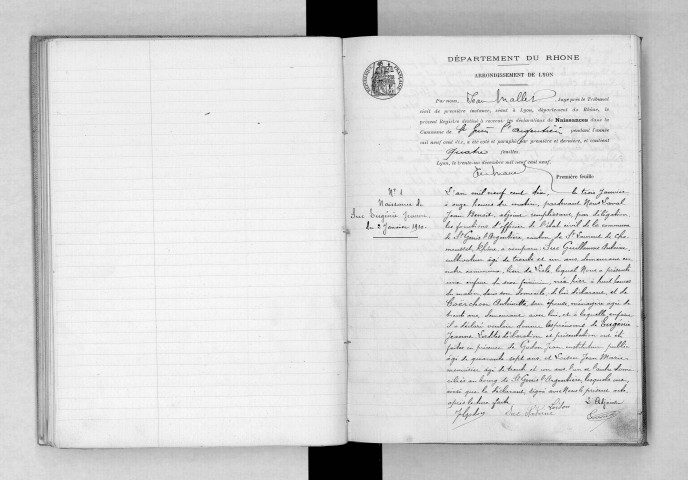 DÉPARTEMENT DU RHONE
ARRONDISSEMENT DE LYON
Par nous, Jean Mallet Juge près le Tribunal
civil de première instance, séant à Lyon, département du Rhône, le
présent Registre destiné à recevoir les déclarations de Naissances dans la
Commune de St Genis l'Argentière pendant l'année
mil neuf cent dix, a été coté et paraphé par première et dernière, et contient
quatre feuilles.
Lyon, le trente-un décembre mil neuf cent neuf.
Première feuille
N° 1
Naissance de
Suc Eugénie Jeanne
du 2 Janvier 1910.
L'an mil neuf cent dix, le trois Janvier
à onze heures du matin, pardevant Nous Laval
Jean Benoit, adjoint remplissant par délégation
les fonctions d'officier de l'état civil de la commune
de St Genis l'Argentière, canton de St Laurent de Cha-
mousset, Rhône, a comparu Suc Guillaume Antoine
cultivateur âgé de trente et un ans, demeurant en
notre commune, lieu de lequel Nous a présenté
une enfant du sexe féminin, née hier à huit heures
du matin dans son domicile, de lui déclarant, et de
Antoinette, son épouse, ménagère âgée de
trente ans, demeurant avec lui, et à laquelle enfant
il a déclaré vouloir donner les prénoms de Eugénie
Jeanne. Lesdites déclaration et présentation ont été
faites en présence de Jean, instituteur public
âgé de quarante sept ans et Jean Marie
menuisier âgé de trente et un ans l'un et l'autre domi-
ciliés au bourg de St Genis l'Argentière, lesquels ont,
ainsi que le déclarant, signé avec Nous le présent acte
après lecture faite.
L'Adjoint